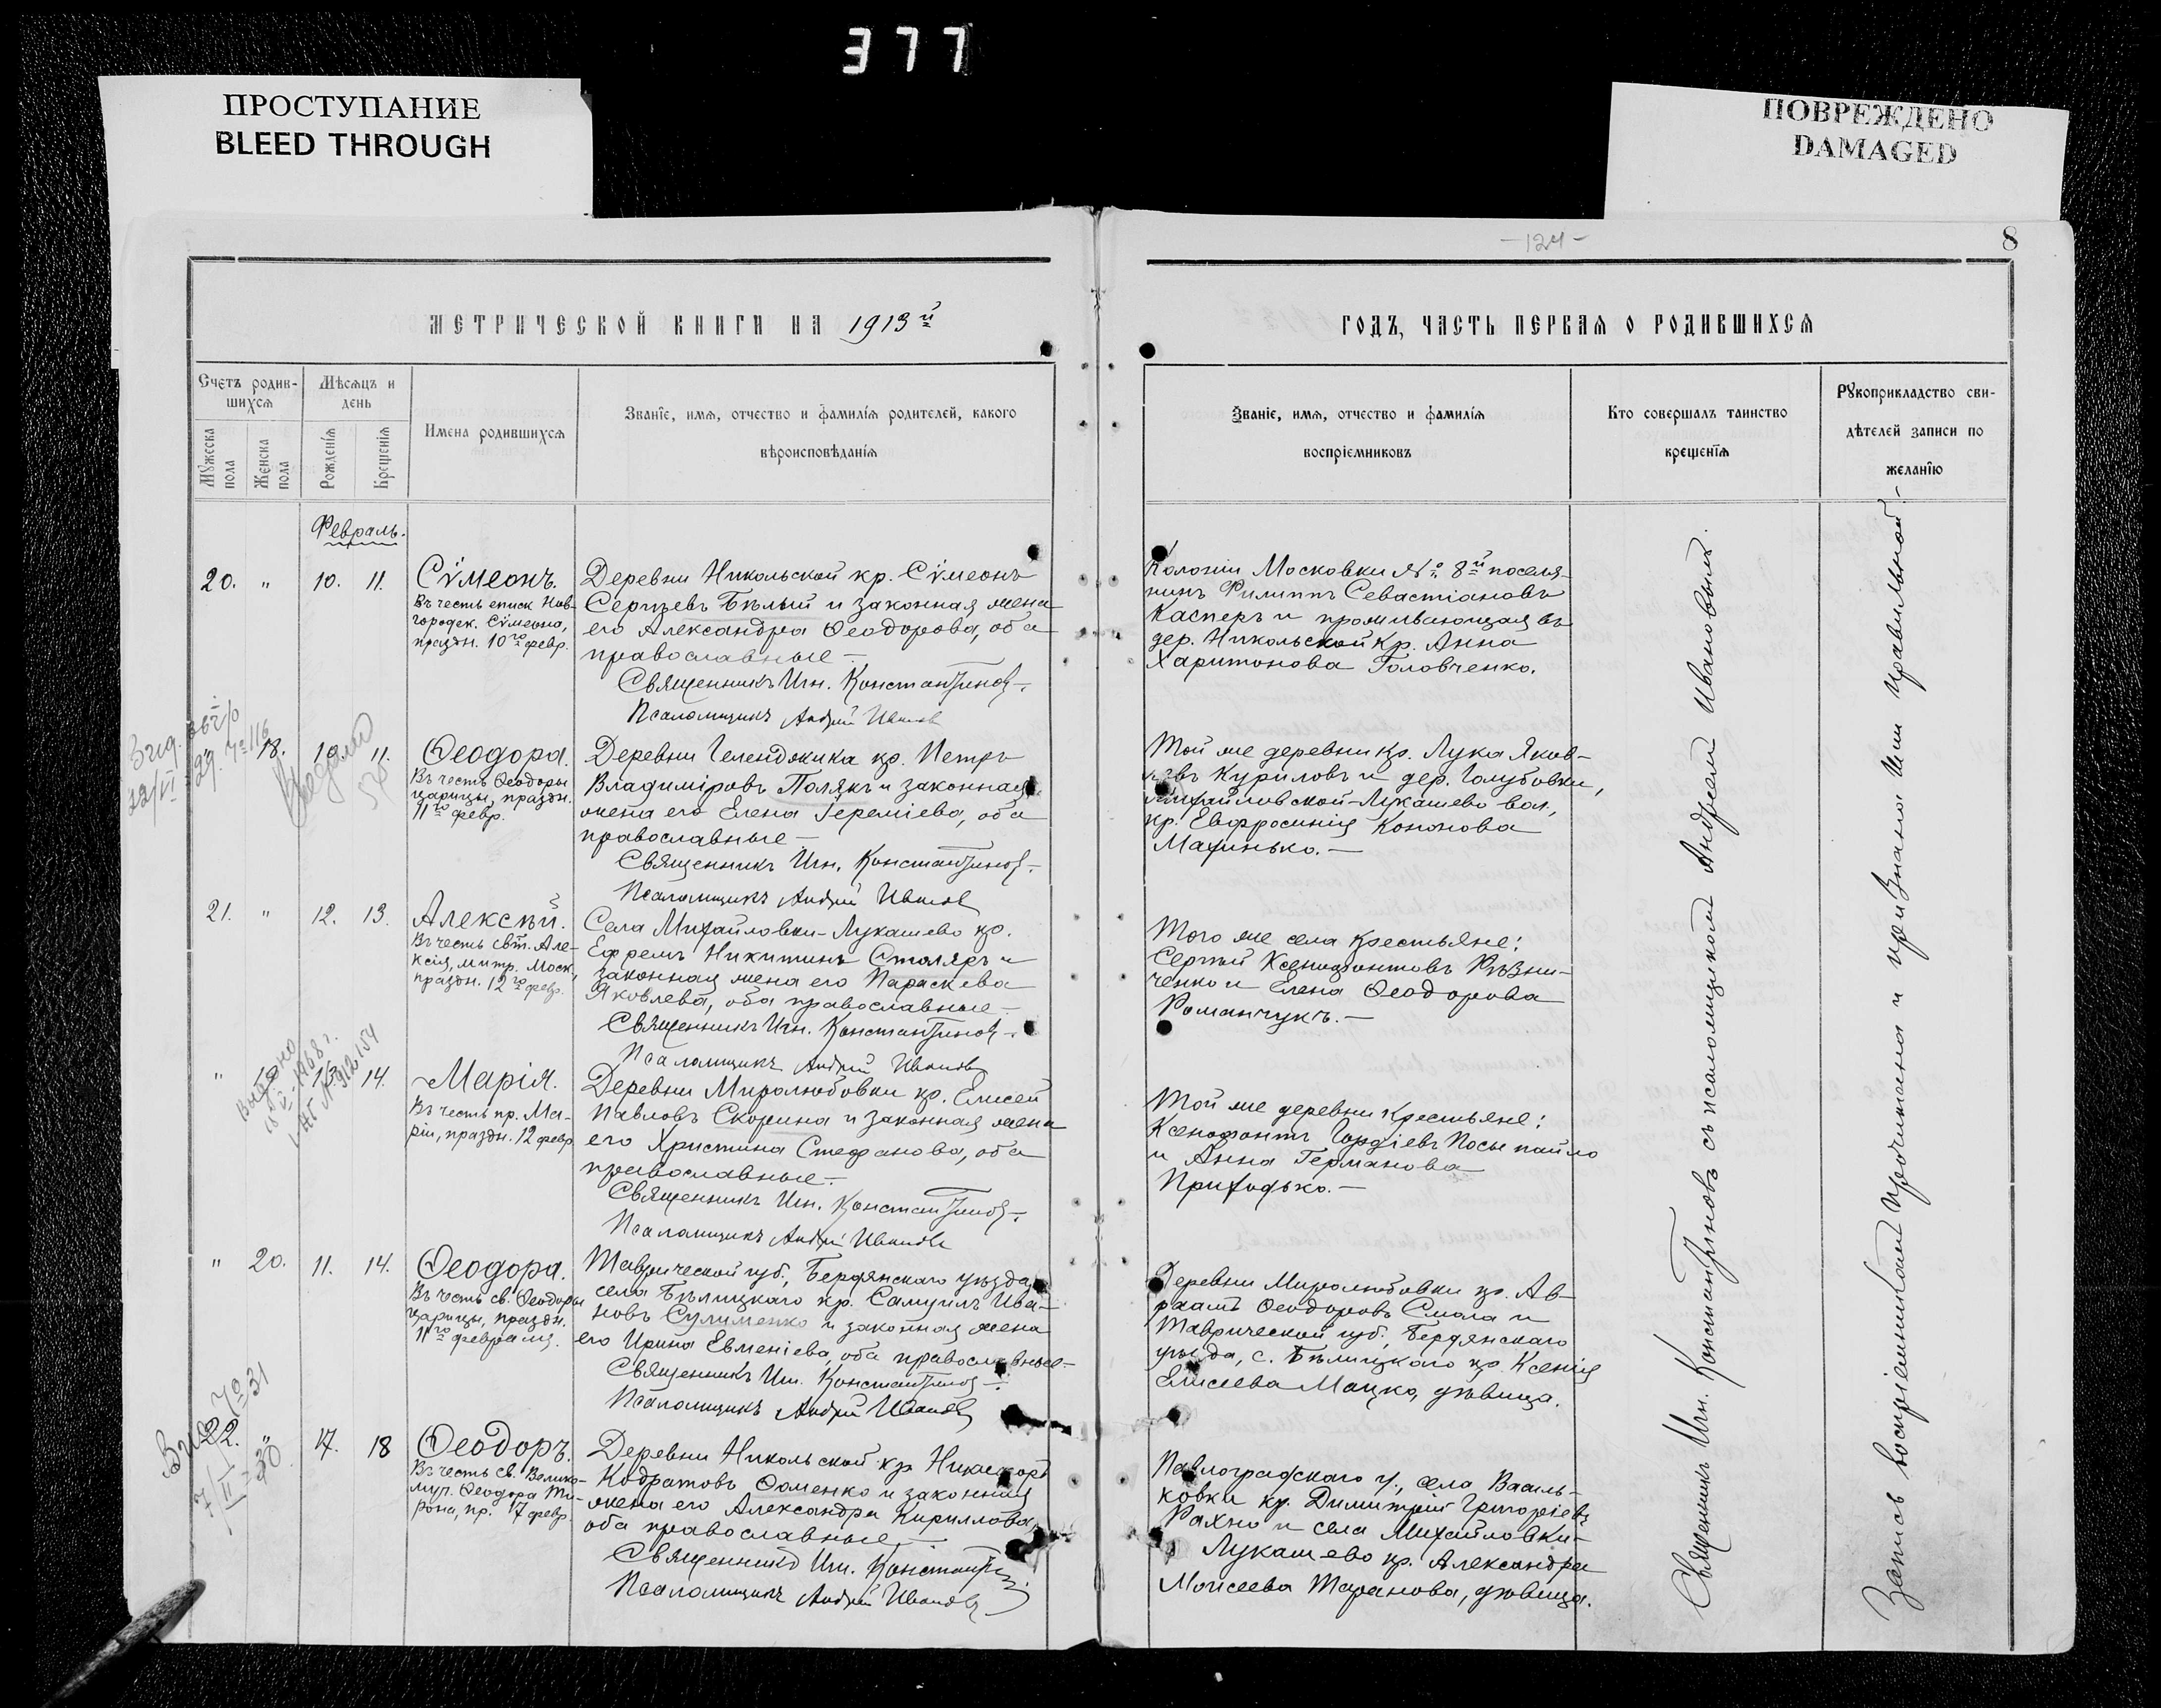 377
ПРОСТУПАНИЕ
BLEED THROUGH
ПОВРЕЖДЕНО
DAMAGED
-124-
8
МЕТРИЧЕСКОЙ КНИГИ НА 1913й
ГОДЪ, ЧАСТЬ ПЕРВАЯ О РОДИВШИХСЯ
Счетъ родив-
шихся
Мѣсяцъ и
день
Мужеска
пола
Женска
пола
Рожденія
Крещенія
Имена родившихся
Званіе, имя, отчество и фамилія родителей, какого
вѣроисповѣданія
Званіе, имя, отчество и фамилія
воспріемниковъ
Кто совершалъ таинство
крещенія
Рукоприкладство сви-
дѣтелей записи по
желанію
Февраль.
20. " 10. 11.
Сѵмеонъ.
Въ честь еписк. Нов-
городск. Сѵмеона,
праздн. 10го февр.
Деревни Никольской кр. Сѵмеонъ
Сергѣевъ Бѣлый и законная жена
его Александра Ѳеодорова, оба
православные —
Священникъ Игн. Константиновъ.
Псаломщикъ Андрей Ивановъ
Колоніи Московки № 8й поселя-
нинъ Филиппъ Севастіановъ
Касперъ и проживающая въ
дер. Никольской кр. Анна
Харитонова Головченко.
" 18. 10. 11.
Ѳеодора.
Въ честь Ѳеодоры
царицы, праздн.
11го февр.
Деревни Геленджика кр. Петръ
Владиміровъ Полякъ и законная
жена его Елена Іереміева, оба
православные —
Священникъ Игн. Константиновъ.
Псаломщикъ Андрей Ивановъ
Той же деревни кр. Лука Яков-
левъ Куриловъ и дер. Голубовки,
Михайловской-Лукашево вол.,
кр. Евфросинія Кононова
Махинько. —
21. " 12. 13.
Алексѣй.
Въ честь свт. Але-
ксія, митр. Моск.,
праздн. 12го февр.
Села Михайловки-Лукашево кр.
Ефремъ Никитинъ Столяръ и
законная жена его Параскева
Яковлева, оба православные —
Священникъ Игн. Константиновъ.
Псаломщикъ Андрей Ивановъ
Того же села крестьяне:
Сергѣй Ксенофонтовъ Рѣзни-
ченко и Елена Ѳеодорова
Романчукъ. —
" 14.
Марія.
Въ честь пр. Ма-
ріи, праздн. 12 февр.
Деревни Миролюбовки кр. Елисей
Павловъ Скорина и законная жена
его Христина Стефанова, оба
православные —
Священникъ Игн. Константиновъ.
Псаломщикъ Андрей Ивановъ
Той же деревни крестьяне:
Ксенофонтъ Гордіевъ Посыпайло
и Анна Германова
Приходько. —
" 20. 11. 14.
Ѳеодора.
Въ честь св. Ѳеодоры
царицы, праздн.
11го февраля.
Таврической губ., Бердянскаго уѣзда,
села Бѣлицкаго кр. Самуилъ Ива-
новъ Сулименко и законная жена
его Ирина Евменіева, оба православные —
Священникъ Игн. Константиновъ.
Псаломщикъ Андрей Ивановъ
Деревни Миролюбовки кр. Ав-
раамъ Ѳеодоровъ Смола и
Таврической губ., Бердянскаго
уѣзда, с. Бѣлицкаго кр. Ксенія
Елисеева Мацко, дѣвица.
22. " 17. 18
Ѳеодоръ.
Въ честь св. Велико-
муч. Ѳеодора Ти-
рона, пр. 17 февр.
Деревни Никольской кр. Никифоръ
Кодратовъ Ѳоменко и законная
жена его Александра Кириллова,
оба православные —
Священникъ Игн. Константиновъ
Псаломщикъ Андрей Ивановъ
Павлоградскаго у., села Василь-
ковки кр. Димитрій Григоріевъ
Рахно и села Михайловки-
Лукашево кр. Александра
Моисеева Таранова, дѣвица.
Священникъ Игн. Константиновъ съ псаломщикомъ Андреемъ Ивановымъ.
Запись воспріемникам прочитана и признана ими правильной.